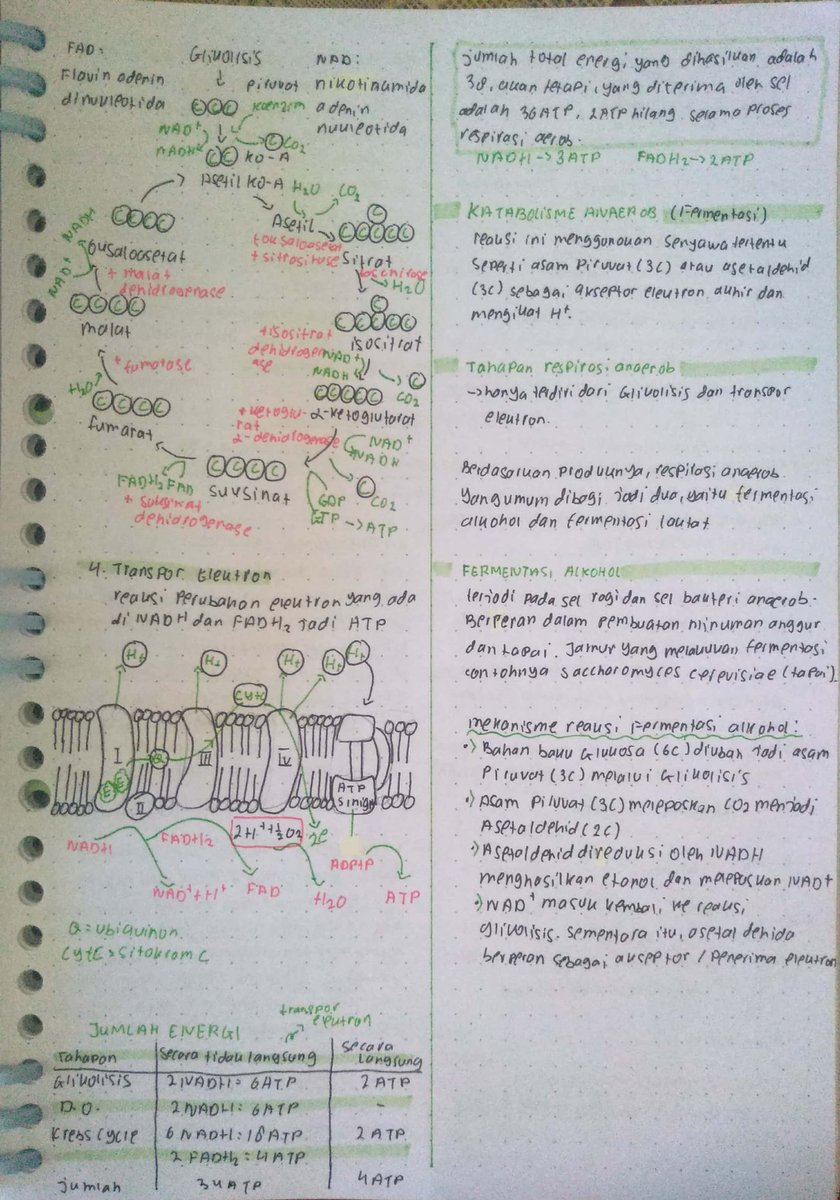 FAD:
Flavin adenin
dinukleotida
Glikolisis
NAD:
nikotinamida
adenin
nukleotida
piruvat
CCC
koenzim
NAD+
NADH
C CO2
CC KO-A
Asetil KO-A
H2O
CO2
Asetil
C
CCCCC
Sitrat
+ sitrat
H2O
C
CCCCC
isositrat
+isositrat
dehidrogen
ase
NAD+
NADH
C
CO2
CCCCC
α-ketoglutarat
+ ketoglu-
rat
2-dehidrogenase
NAD+
NADH
C
CO2
GDP
GTP → ATP
CCCC
suksinat
FADH2 FAD
+ suksinat
dehidrogenase
CCCC
fumarat
H2O
+ fumarase
CCCC
malat
+ malat
dehidrogenase
NAD+
NADH
CCCC
oksaloasetat
4. Transpor Elektron
reaksi perubahan elektron yang ada
di NADH dan FADH2 jadi ATP
H+
H+
H+
H+
H+
Cytc
I
Q
III
IV
II
ATP
NADH
FADH2
2H+ + ½O2
2e
ADP+P
NAD+ + H+
FAD
H2O
ATP
Q = ubiquinon
Cyt C = Sitokrom C
JUMLAH ENERGI
transpor
elektron
Tahapan | Secara tidak langsung | Secara langsung
Glikolisis | 2 NADH = 6 ATP | 2 ATP
D.O. | 2 NADH = 6 ATP | -
Krebs Cycle | 6 NADH = 18 ATP | 2 ATP
2 FADH2 = 4 ATP
jumlah | 34 ATP | 4 ATP
jumlah total energi yang dihasilkan adalah
38, akan tetapi, yang diterima oleh sel
adalah 36 ATP, 2 ATP hilang selama proses
respirasi aerob.
NADH → 3 ATP FADH2 → 2 ATP
KATABOLISME ANAEROB (Fermentasi)
reaksi ini menggunakan senyawa tertentu
seperti asam piruvat (3C) atau asetaldehid
(3C) sebagai akseptor elektron akhir dan
mengikat H+.
Tahapan respirasi anaerob
→ hanya terdiri dari Glikolisis dan transpor
elektron.
Berdasarkan produknya, respirasi anaerob
yang umum dibagi jadi dua, yaitu fermentasi
alkohol dan fermentasi laktat
FERMENTASI ALKOHOL
terjadi pada sel ragi dan sel bakteri anaerob.
Berperan dalam pembuatan minuman anggur
dan tapai. Jamur yang melakukan fermentasi
contohnya saccharomyces cerevisiae (tapai)
mekanisme reaksi Fermentasi alkohol:
•) Bahan baku Glukosa (6C) diubah jadi asam
Piruvat (3C) melalui Glikolisis
•) Asam Piruvat (3C) melepaskan CO2 menjadi
Asetaldehid (2C)
•) Asetaldehid direduksi oleh NADH
menghasilkan etanol dan melepaskan NAD+
•) NAD+ masuk kembali ke reaksi
glikolisis. sementara itu, asetaldehida
berperan sebagai akseptor / penerima elektron